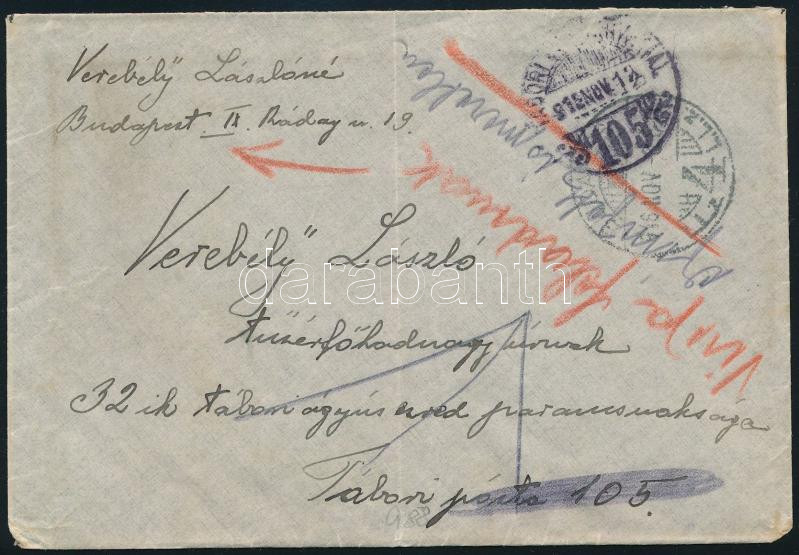 Verebélÿ Lászlóné
Budapest IX. Ráday u. 19.
TÁBORI POSTAHIVATAL
915 NOV. 12
105
Vissza feladónak
Verebélÿ László
tüzérfőhadnagy úrnak
32 ik tábori ágyús ezred parancsnoksága
Tábori pósta 105.
darabanth